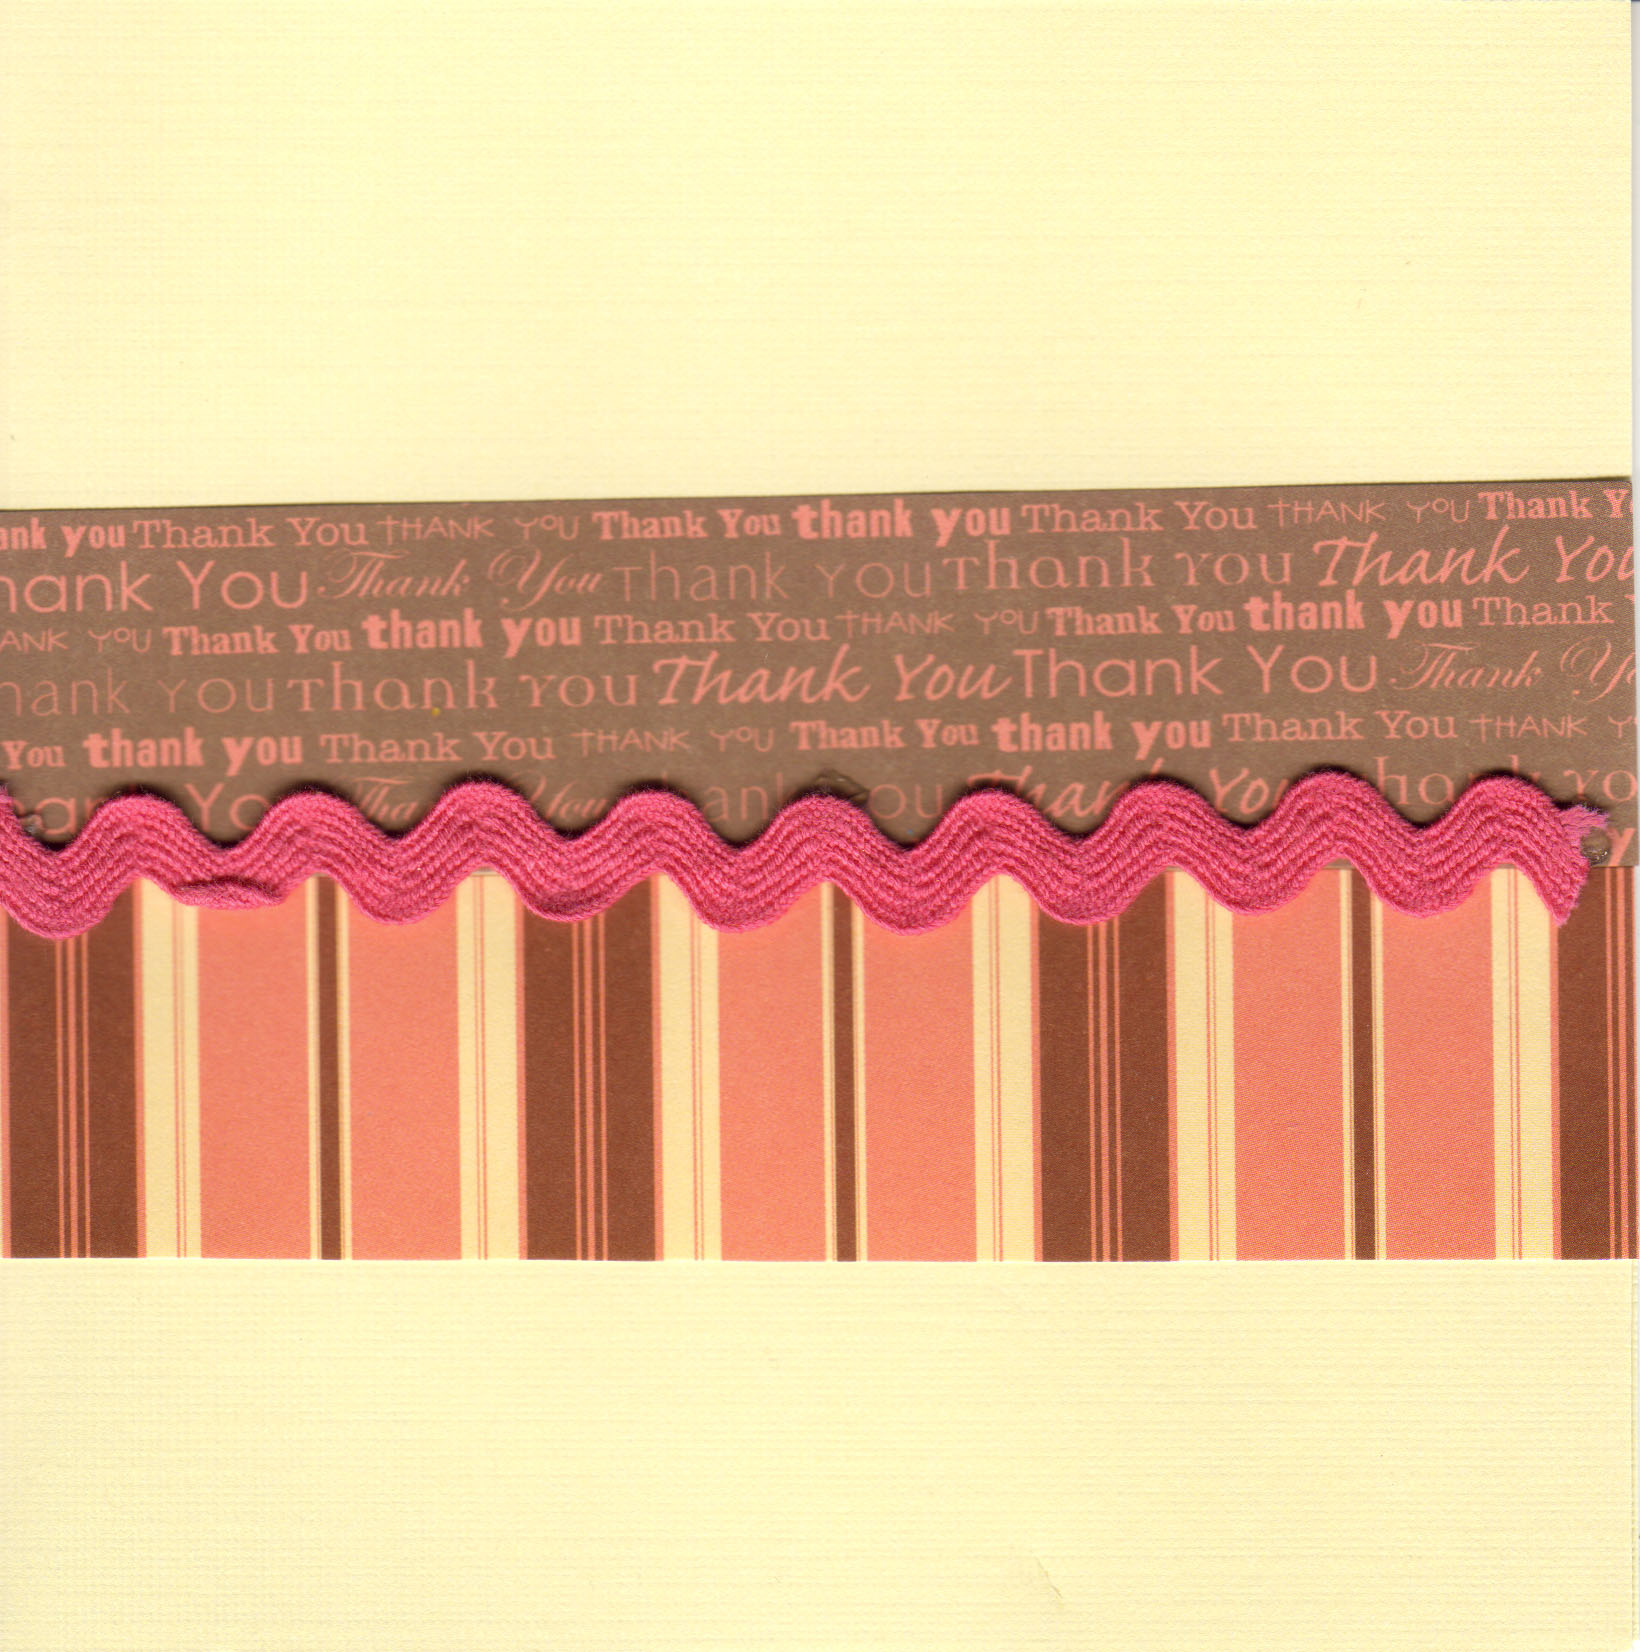 you Thank You THANK YOU Thank You thank you Thank You THANK YOU Thank
You Thank You Thank You Thank You Thank You
YOU Thank You thank you Thank You THANK YOU Thank You thank you Thank
YOU Thank You Thank You Thank You Thank
You thank you Thank You THANK YOU Thank You thank you Thank You THANK